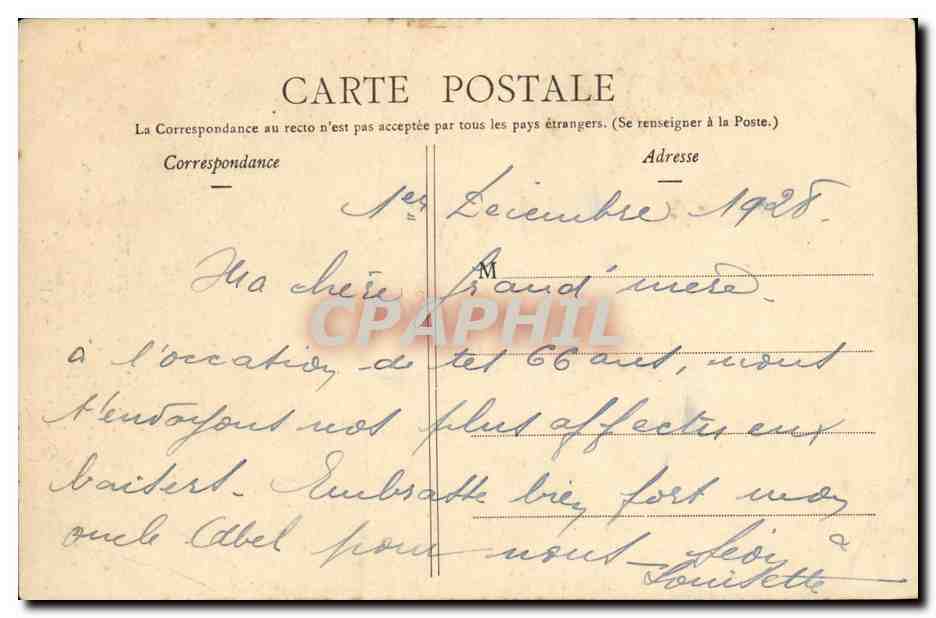 CARTE POSTALE
La Correspondance au recto n'est pas acceptée par tous les pays étrangers. (Se renseigner à la Poste.)
Correspondance
Adresse
1er Décembre 1928.
M
Ma chère Grand'mère.
CPAPHIL
à l'occasion de tes 66 ans, nous
t'envoyons nos plus affectueux
baisers. Embrasse bien fort mon
oncle Abel pour nous. Léon &
Louisette